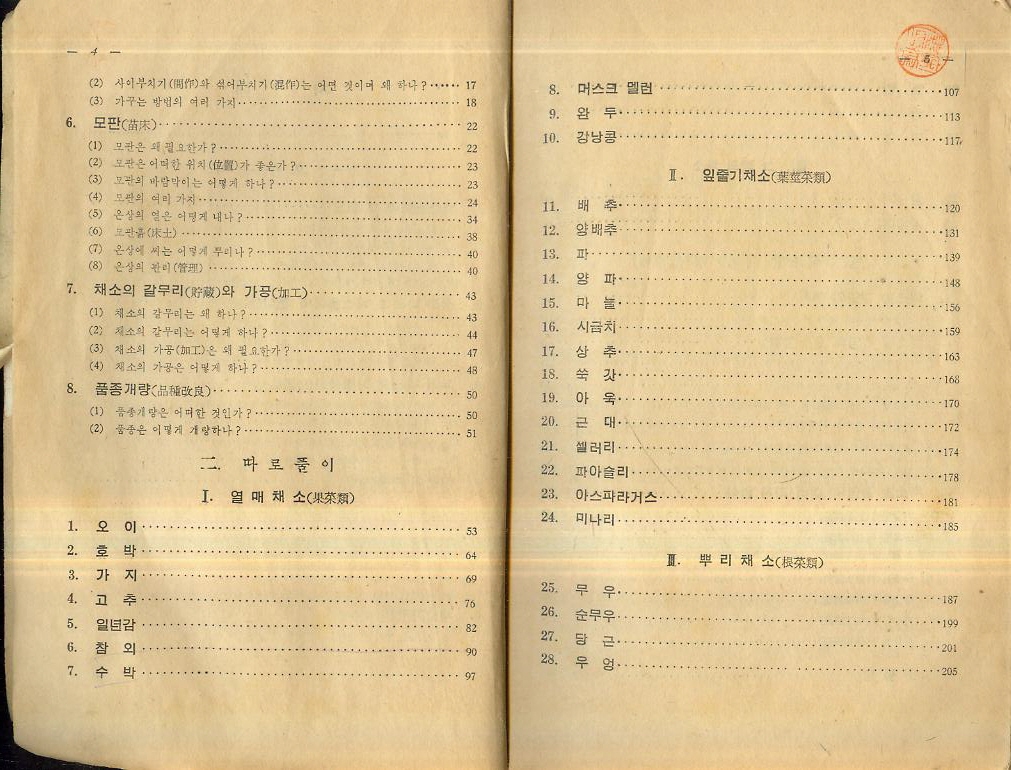 — 4 —
(2) 사이부치기(間作)와 섞어부치기(混作)는 어떤 것이며 왜 하나?······ 17
(3) 가꾸는 방법의 여러 가지······ 18
6. 모판(苗床)······ 22
(1) 모판은 왜 필요한가?······ 22
(2) 모판은 어떠한 위치(位置)가 좋은가?······ 23
(3) 모판의 바람막이는 어떻게 하나?······ 23
(4) 모판의 여러 가지······ 24
(5) 온상의 열은 어떻게 내나?······ 34
(6) 모판흙(床土)······ 38
(7) 온상에 씨는 어떻게 뿌리나?······ 40
(8) 온상의 관리(管理)······ 40
7. 채소의 갈무리(貯蔵)와 가공(加工)······ 43
(1) 채소의 갈무리는 왜 하나?······ 43
(2) 채소의 갈무리는 어떻게 하나?······ 44
(3) 채소의 가공(加工)은 왜 필요한가?······ 47
(4) 채소의 가공은 어떻게 하나?······ 48
8. 품종개량(品種改良)······ 50
(1) 품종개량은 어떠한 것인가?······ 50
(2) 품종은 어떻게 개량하나?······ 51
二. 따로풀이
Ⅰ. 열매채소(果菜類)
1. 오이······ 53
2. 호박······ 64
3. 가지······ 69
4. 고추······ 76
5. 일년감······ 82
6. 참외······ 90
7. 수박······ 97
— 5 —
8. 머스크 멜런······ 107
9. 완두······ 113
10. 강낭콩······ 117
Ⅱ. 잎줄기채소(葉莖菜類)
11. 배추······ 120
12. 양배추······ 131
13. 파······ 139
14. 양파······ 148
15. 마늘······ 156
16. 시금치······ 159
17. 상추······ 163
18. 쑥갓······ 168
19. 아욱······ 170
20. 근대······ 172
21. 셀러리······ 174
22. 파아슬리······ 178
23. 아스파라거스······ 181
24. 미나리······ 185
Ⅲ. 뿌리채소(根菜類)
25. 무우······ 187
26. 순무우······ 199
27. 당근······ 201
28. 우엉······ 205